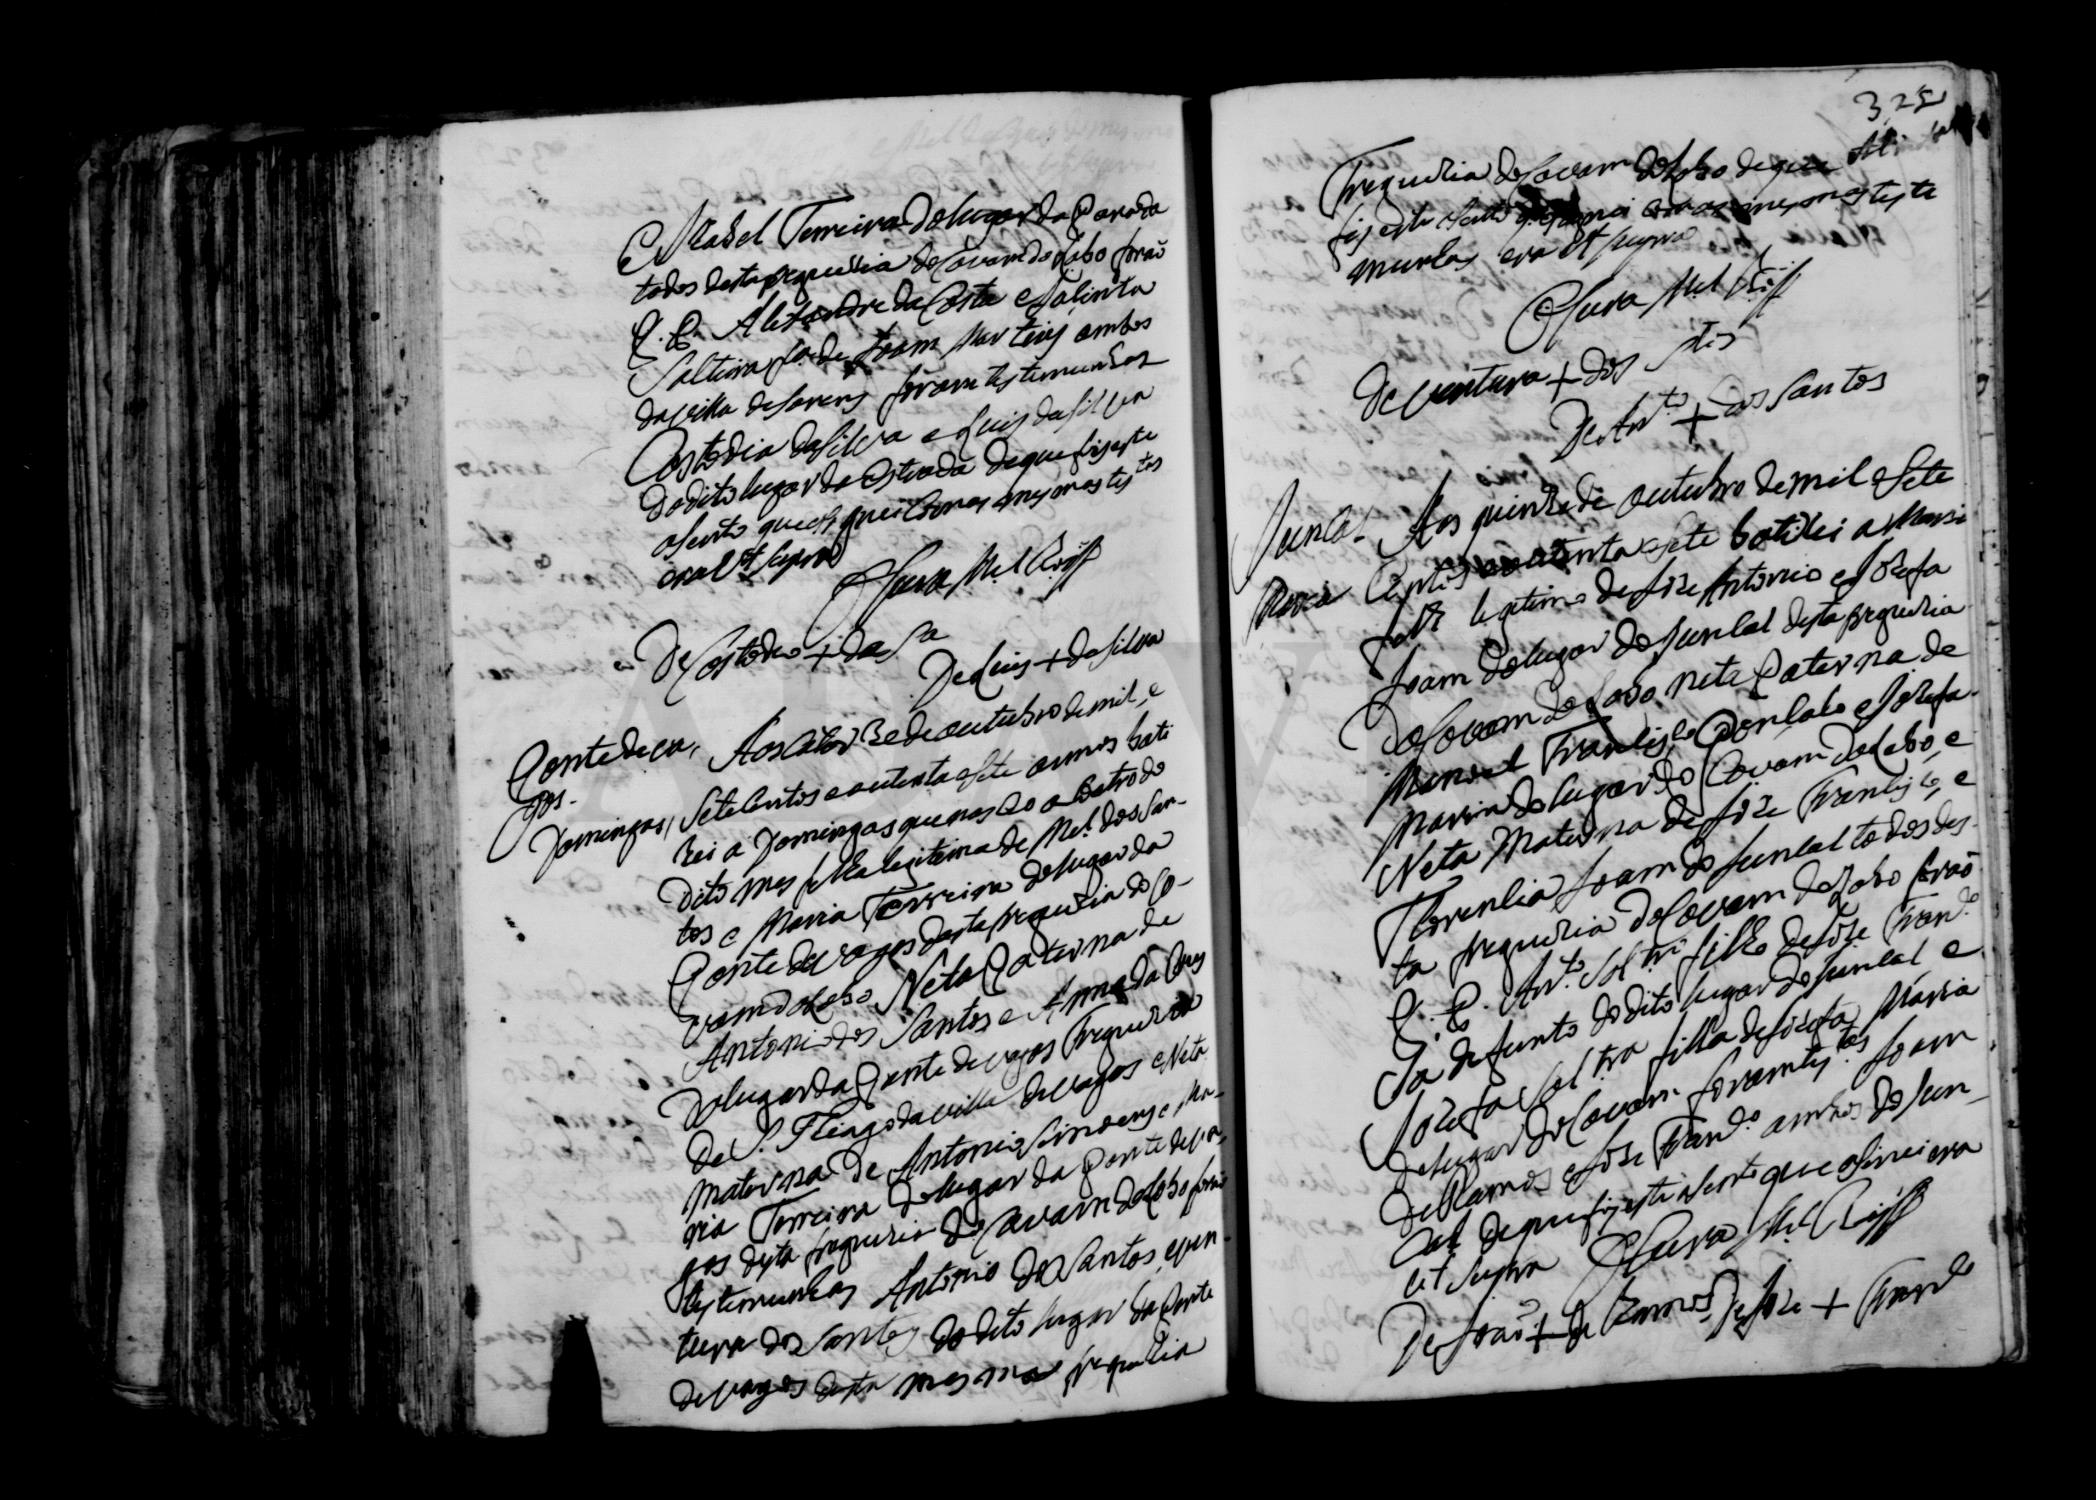 e Izabel Ferreira do lugar da Parada
todos desta freguezia de Covam do Lobo forão
P. P. Alexandre da Costa e Jacinta
Solteira fa. de Joam Martins ambos
da villa de foram testemunhas
Costodio da Silva e Luis da Silva
do dito lugar da Estrada de que fis este
asento que asignei com as mesmas testas
era Ut supra
O Cura Mel
De Costodio + da Sa
De Luis + da Silva
Ponte de va,
gos.
Domingas,
Aos catorze de outubro de mil, e
Setecentos e outenta e sete annos bati
zei a Domingas que nasceo a coatro do
dito mes filha legitima de Mel. dos San-
tos e Maria Ferreira do lugar da
Ponte de vagos desta freguezia de Co-
vam do Lobo Neta Paterna de
Antonio dos Santos e Anna da Cruz
do lugar da Ponte de vagos Freguezia
de S. Thiago da villa de vagos e Neta
materna de Antonio Simoens e Ma-
ria Ferreira do lugar da Ponte de va,
gos desta freguezia de Covam do Lobo forão
testemunhas Antonio dos Santos, e ven-
tura dos Santos do dito lugar da Ponte
de vagos desta mesma freguezia
325
Freguezia de Covam do Lobo de que
fis este asento q. asignei com as mesmas teste
munhas era Ut supra
O Cura Mel
De ventura + dos Stos
De Anto + dos Santos
Juncal
Maria
Aos quinze de outubro de mil e Sete
centos e outenta e sete batizei a Maria
fa. legitima de Joze Antonio e Jozefa
Joam do lugar do Juncal desta freguezia
de Covam do Lobo neta Paterna de
Manoel Francisco e Jozefa
Maria do lugar do Covam do Lobo, e
Neta Materna de Joze Francisco, e
Florencia Joam do Juncal todos des-
ta freguezia de Covam do Lobo forão
P. P. Anto. Soltro. filho de Joze Franco.
ja defunto do dito lugar do Juncal e
Jozefa Soltra filha de Jozefa Maria
do lugar do Covam foram testas Joam
de Ramos e Joze Franco. ambos do Jun-
cal de que fis este asento que asinei era
Ut supra O Cura Mel
De João + de Ramos De Joze + Franco